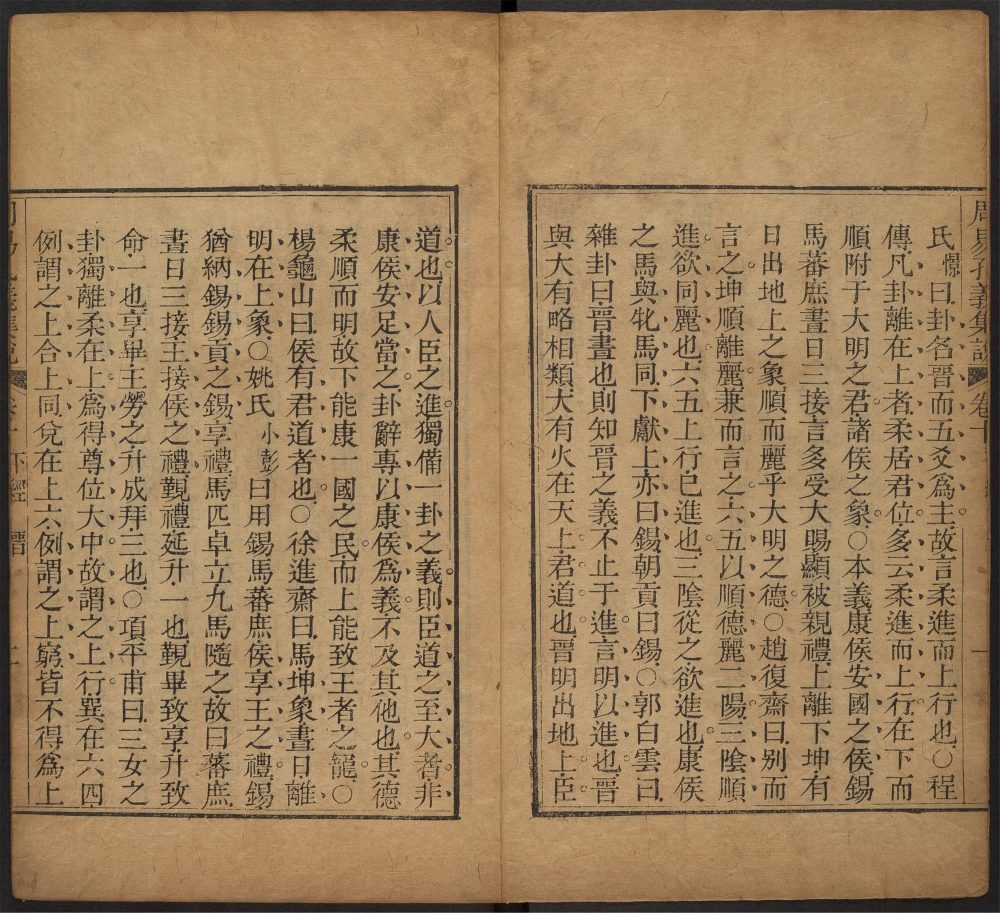 周易孔義集說 卷十
氏憬曰卦名晉而五爻為主故言柔進而上行也○程
傳凡卦離在上者柔居君位多云柔進而上行在下而
順附于大明之君諸侯之象○本義康侯安國之侯錫
馬蕃庶晝日三接言多受大賜顯被親禮上離下坤有
日出地上之象順而麗乎大明之德○趙復齋曰別而
言之坤順離麗兼而言之六五以順德麗二陽三陰順
進欲同麗也六五上行巳進也三陰從之欲進也康侯
之馬與牝馬同下獻上亦曰錫朝貢曰錫○郭白雲曰
雜卦曰晉晝也則知晉之義不止于進言明以進也晉
與大有略相類大有火在天上君道也晉明出地上臣
道也以人臣之進獨備一卦之義則臣道之至大者非
康侯安足當之卦辭專以康侯為義不及其他也其德
柔順而明故下能康一國之民而上能致王者之寵○
楊龜山曰侯有君道者也○徐進齋曰馬坤象晝日離
明在上象○姚氏小彭曰用錫馬蕃庶侯享王之禮錫
猶納錫錫貢之錫享禮馬匹卓立九馬隨之故曰蕃庶
晝日三接王接侯之禮覲禮延升一也覲畢致享升致
命一也享畢王勞之升成拜三也○項平甫曰三女之
卦獨離柔在上為得尊位大中故謂之上行巽在六四
例謂之上合上同兌在上六例謂之上窮皆不得為上
下經 晉